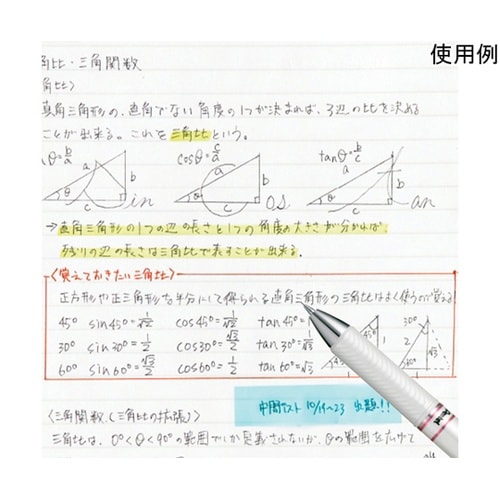 使用例
角比・三角関数
角比〉
直角三角形の、直角でない角度の1つが決まれば、3辺の比を決める
ことが出来る。これを三角比という。
θ=b/a cosθ=c/a tanθ=b/c
a b c θ in
a b c θ os
a b c θ an
→直角三角形の1つの辺の長さと1つの角度の大きさが分かれば、
残りの辺の長さは三角比で表すことが出来る。
〈覚えておきたい三角比〉
正方形や正三角形を半分にして得られる直角三角形の三角比はよく使うので覚える!
45° sin45°=1/√2 cos45°=1/√2 tan45°=
30° sin30°=1/2 cos30°=√3/2 tan30°=
60° sin60°=√3/2 cos60°=1/2 tan60°=√3
45° 1 30° 2 √3
中間テスト 10/19~23 出題!!
〈三角関数(三角比の拡張)〉
三角比は、0°<θ<90°の範囲でしか定義されないが、θの範囲を広げて